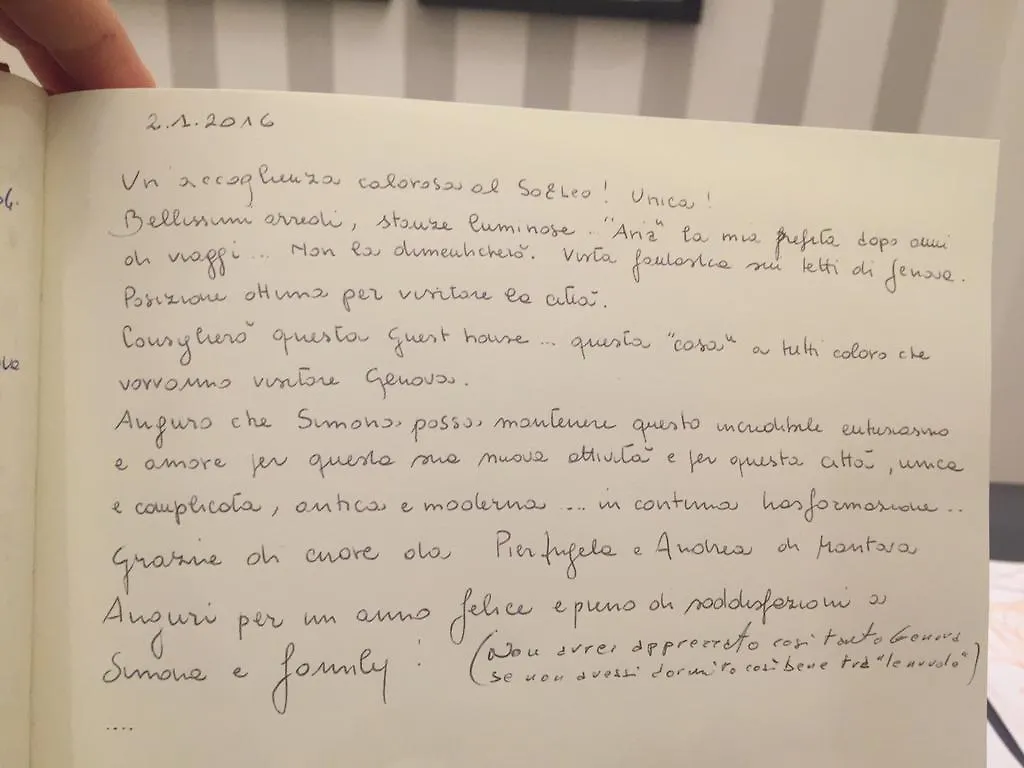 2.1.2016
Un'accoglienza calorosa al So&Leo! Unica!
Bellissimi arredi, stanze luminose.. "Aria" la mia prefita dopo anni
di viaggi... Non la dimenticherò. Vista fantastica sui tetti di Genova.
Posizione ottima per visitare la città.
Consiglierò questa Guest house... questa "casa" a tutti coloro che
vorranno visitare Genova.
Auguro che Simona possa mantenere questo incredibile entusiasmo
e amore per questa sua nuova attività e per questa città, unica
e complicata, antica e moderna ... in continua trasformazione..
Grazie di cuore da e Andrea di Mantova
Auguri per un anno felice e pieno di soddisfazioni a
Simona e family!
(Non avrei apprezzato così tanto Genova
se non avessi dormito così bene tra "le nuvole")
....
04.